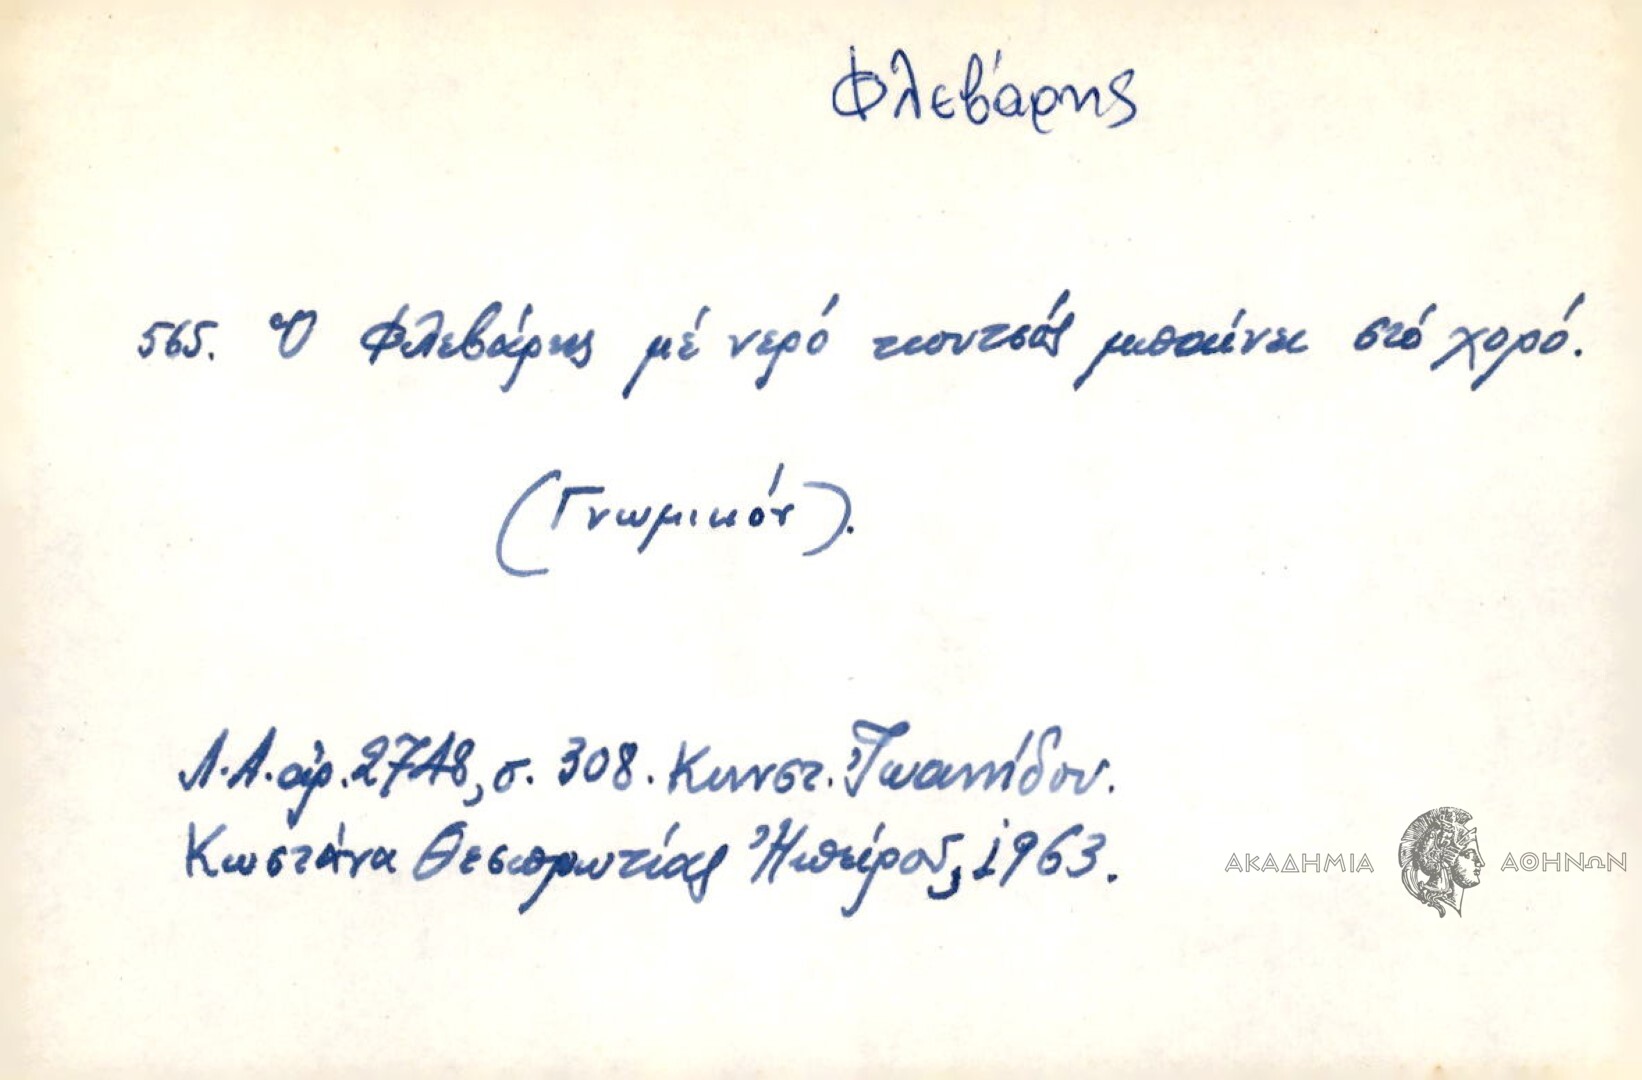 Φλεβάρης
565. Ὁ Φλεβάρης μέ νερό κουτσός μπαίνει στό χορό.
(Γνωμικόν).
Λ.Α. ἀρ. 2748, σ. 308. Κωνστ. Ἰωαννίδου.
Κωστάνα Θεσπρωτίας Ἠπείρου, 1963.
ΑΚΑΔΗΜΙΑ ΑΘΗΝΩΝ